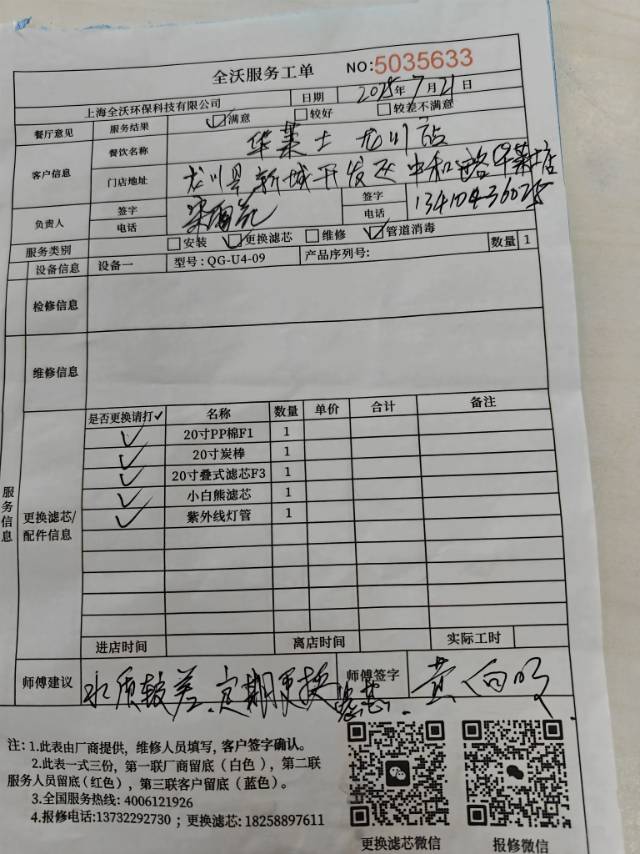 全沃服务工单 NO:5035633
上海全沃环保科技有限公司 日期 2025年7月21日
餐厅意见 服务结果 ☑满意 □较好 □较差不满意
客户信息 餐饮名称 华莱士 龙川店
门店地址 龙川县新城开发区中和路华莱士店
负责人 签字 电话 签字 电话 13410436025
服务类别 □安装 ☑更换滤芯 □维修 ☑管道消毒
设备信息 设备一 型号:QG-U4-09 产品序列号: 数量 1
检修信息
维修信息
服务信息
更换滤芯/配件信息
是否更换请打✓ 名称 数量 单价 合计 备注
✓ 20寸PP棉F1 1
✓ 20寸炭棒 1
✓ 20寸叠式滤芯F3 1
✓ 小白熊滤芯 1
✓ 紫外线灯管 1
进店时间 离店时间 实际工时
师傅建议 水质较差、定期更换滤芯. 师傅签字 黄向明
注: 1.此表由厂商提供，维修人员填写, 客户签字确认。
2.此表一式三份，第一联厂商留底(白色)，第二联
服务人员留底(红色)，第三联客户留底(蓝色)。
3.全国服务热线: 4006121926
4.报修电话:13732292730；更换滤芯: 18258897611
更换滤芯微信 报修微信